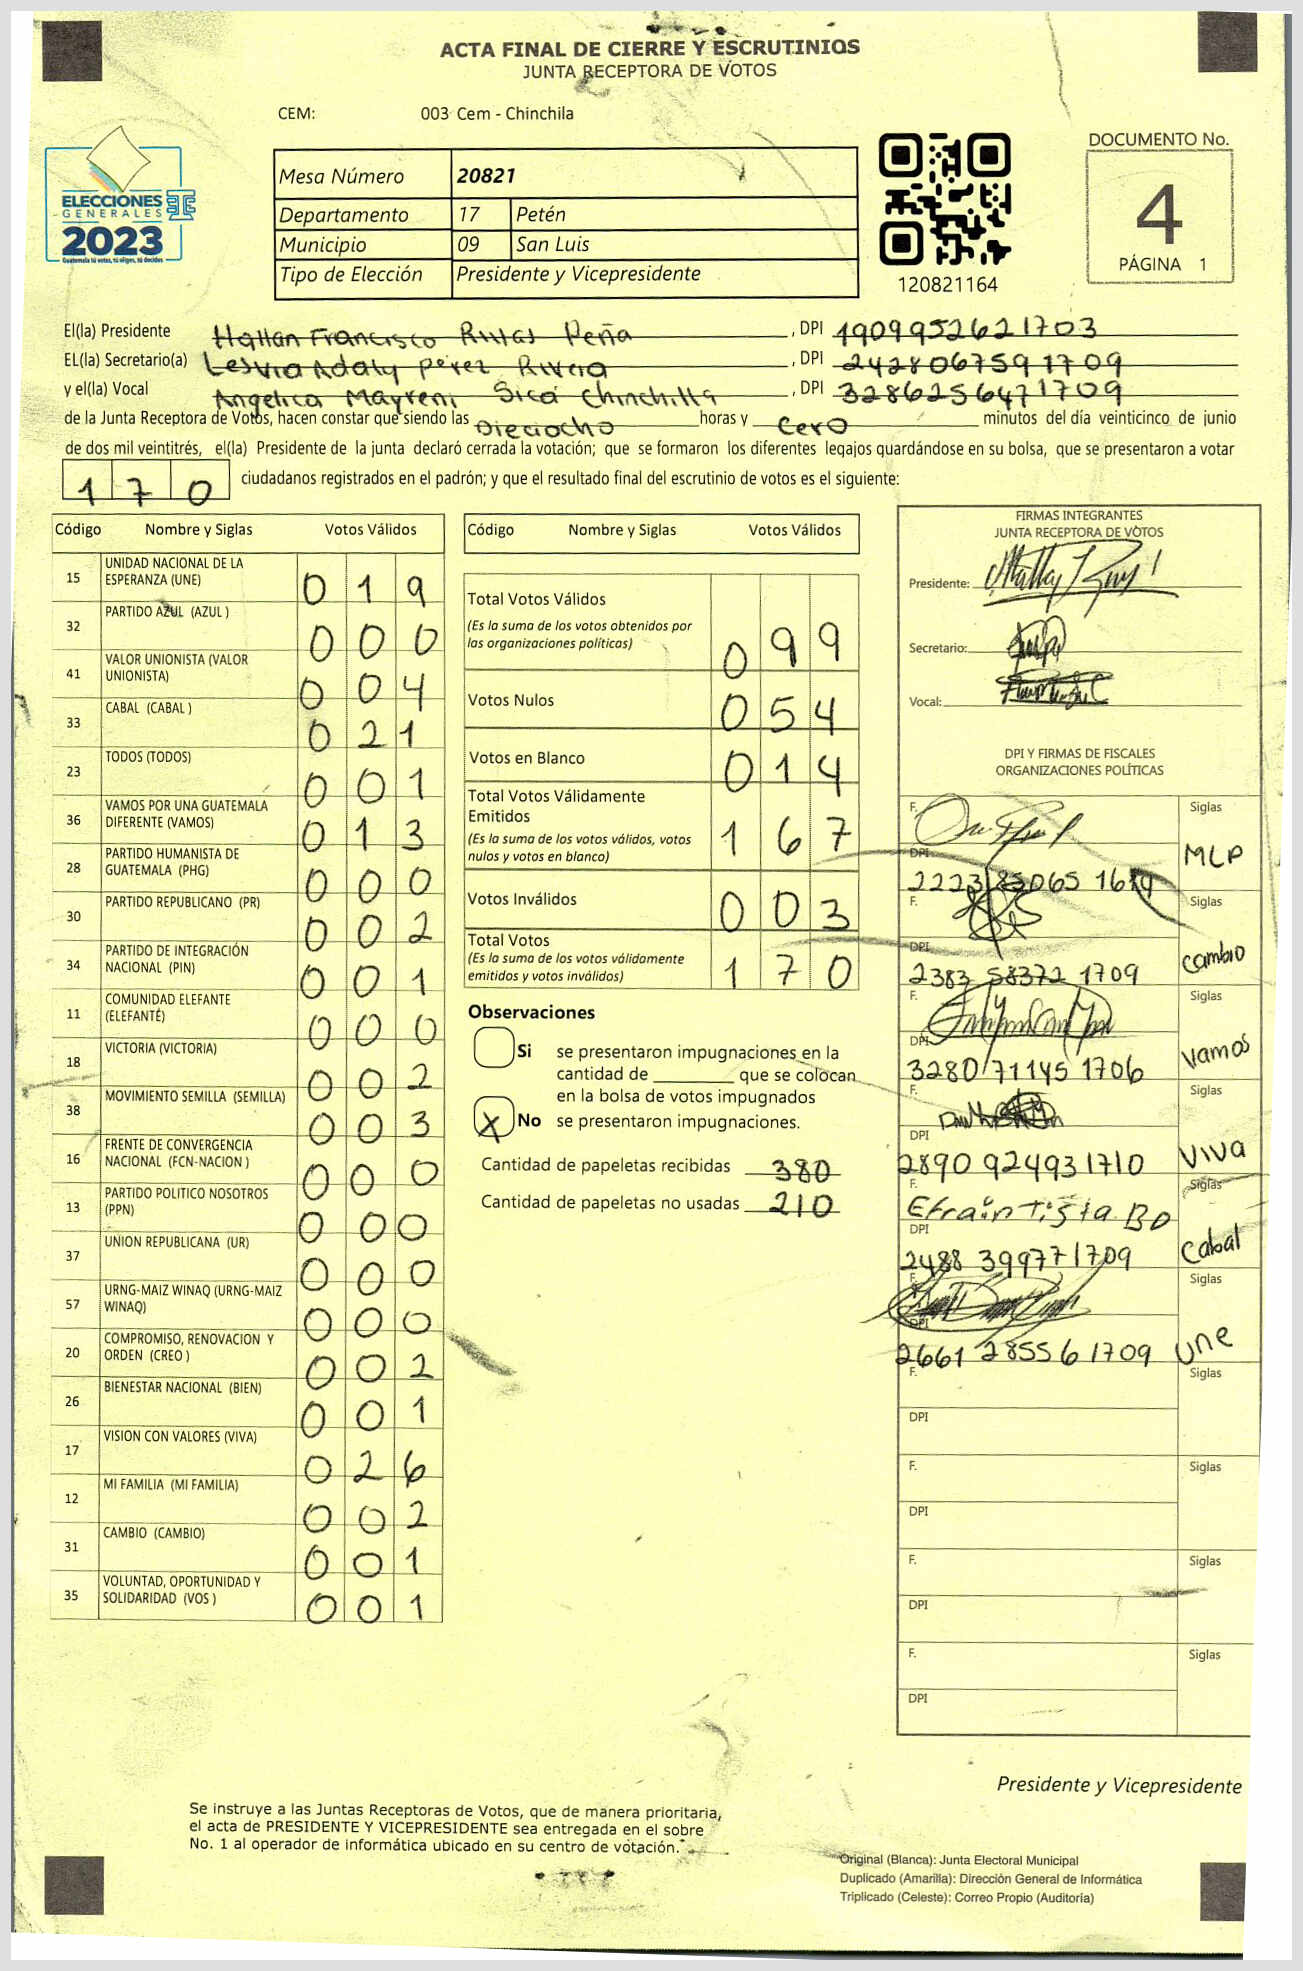 ACTA FINAL DE CIERRE Y ESCRUTINIOS
JUNTA RECEPTORA DE VOTOS
CEM: 003 Cem - Chinchila
ELECCIONES
GENERALES
2023
Guatemala tú votas, tú eliges, tú decides
Mesa Número 20821
Departamento 17 Petén
Municipio 09 San Luis
Tipo de Elección Presidente y Vicepresidente
120821164
DOCUMENTO No.
4
PÁGINA 1
El(la) Presidente Francisco Peña , DPI 1909952621703
EL(la) Secretario(a) Adaly Perez Rivera , DPI 2428067591709
y el(la) Vocal Angelica Mayreni Sica Chinchilla , DPI 3286256471709
de la Junta Receptora de Votos, hacen constar que siendo las Dieciocho horas y Cero minutos del día veinticinco de junio
de dos mil veintitrés, el(la) Presidente de la junta declaró cerrada la votación; que se formaron los diferentes legajos guardándose en su bolsa, que se presentaron a votar
170 ciudadanos registrados en el padrón; y que el resultado final del escrutinio de votos es el siguiente:
Código Nombre y Siglas Votos Válidos
15 UNIDAD NACIONAL DE LA
ESPERANZA (UNE) 019
32 PARTIDO AZUL (AZUL ) 000
41 VALOR UNIONISTA (VALOR
UNIONISTA) 004
33 CABAL (CABAL ) 021
23 TODOS (TODOS) 001
36 VAMOS POR UNA GUATEMALA
DIFERENTE (VAMOS) 013
28 PARTIDO HUMANISTA DE
GUATEMALA (PHG) 000
30 PARTIDO REPUBLICANO (PR) 002
34 PARTIDO DE INTEGRACIÓN
NACIONAL (PIN) 001
11 COMUNIDAD ELEFANTE
(ELEFANTE) 000
18 VICTORIA (VICTORIA) 002
38 MOVIMIENTO SEMILLA (SEMILLA) 003
16 FRENTE DE CONVERGENCIA
NACIONAL (FCN-NACION ) 000
13 PARTIDO POLITICO NOSOTROS
(PPN) 000
37 UNION REPUBLICANA (UR) 000
57 URNG-MAIZ WINAQ (URNG-MAIZ
WINAQ) 000
20 COMPROMISO, RENOVACION Y
ORDEN (CREO ) 002
26 BIENESTAR NACIONAL (BIEN) 001
17 VISION CON VALORES (VIVA) 026
12 MI FAMILIA (MI FAMILIA) 002
31 CAMBIO (CAMBIO) 001
35 VOLUNTAD, OPORTUNIDAD Y
SOLIDARIDAD (VOS ) 001
Código Nombre y Siglas Votos Válidos
Total Votos Válidos
(Es la suma de los votos obtenidos por
las organizaciones políticas) 099
Votos Nulos 054
Votos en Blanco 014
Total Votos Válidamente
Emitidos
(Es la suma de los votos válidos, votos
nulos y votos en blanco) 167
Votos Inválidos 003
Total Votos
(Es la suma de los votos válidamente
emitidos y votos inválidos) 170
Observaciones
Si se presentaron impugnaciones en la
cantidad de ________ que se colocan
en la bolsa de votos impugnados
X No se presentaron impugnaciones.
Cantidad de papeletas recibidas 380
Cantidad de papeletas no usadas 210
FIRMAS INTEGRANTES
JUNTA RECEPTORA DE VOTOS
Presidente:
Secretario:
Vocal:
DPI Y FIRMAS DE FISCALES
ORGANIZACIONES POLÍTICAS
F. Siglas
DPI MLP
2223 85065
F. Siglas
DPI cambio
2383 58372 1709
F. Siglas
DPI vamos
3280 71145 1706
F. Siglas
DPI VIVA
2890 92493 1710
F. Siglas
DPI Cabal
2488 39977 1709
F. Siglas
DPI une
2661 28556 1709
F. Siglas
DPI
F. Siglas
DPI
F. Siglas
DPI
F. Siglas
DPI
Presidente y Vicepresidente
Se instruye a las Juntas Receptoras de Votos, que de manera prioritaria,
el acta de PRESIDENTE Y VICEPRESIDENTE sea entregada en el sobre
No. 1 al operador de informática ubicado en su centro de votación.
Original (Blanca): Junta Electoral Municipal
Duplicado (Amarilla): Dirección General de Informática
Triplicado (Celeste): Correo Propio (Auditoría)